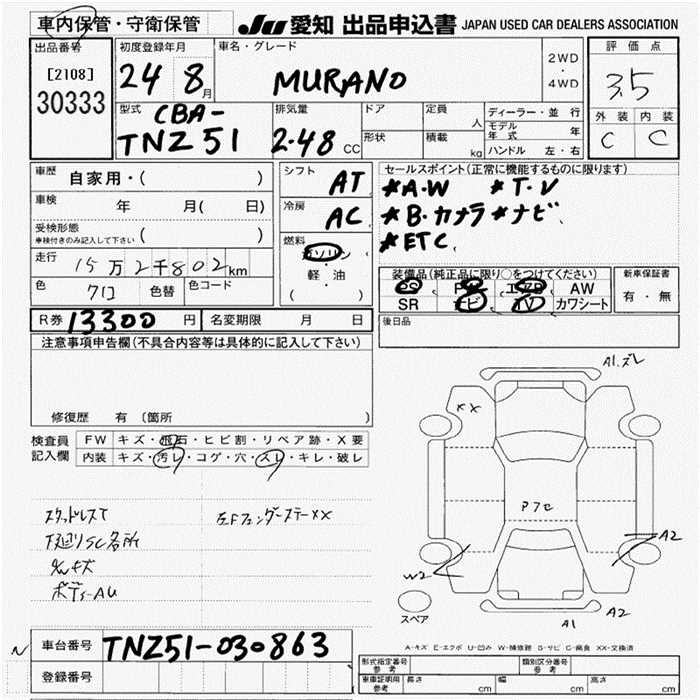 車内保管・守衛保管 JU 愛知 出品申込書 JAPAN USED CAR DEALERS ASSOCIATION
出品番号 初度登録年月 車名・グレード 評価点
[2108] 24 8月 MURANO 2WD・4WD 3.5
30333
型式 CBA- 排気量 ドア 定員 人 ディーラー・並行 外装 内装
TNZ51 2.48 CC 形状 積載 kg モデル年式 年 C C
ハンドル 左・右
車歴 自家用・( ) シフト AT セールスポイント(正常に機能するものに限ります)
車検 年 月( 日) 冷房 AC *A・W *T・V
受検形態 ( ) *B・カメラ *ナビ
車検付きのみ記入して下さい 燃料 ガソリン *ETC
走行 15万2千802km ・
色 クロ 色替 色コード 軽・油 装備品(純正品に限り○をつけてください) 新車保証書
( ) PS PW エアB AW 有・無
SR ナビ TV カワシート
R券 13300円 名変期限 月 日 後日品
注意事項申告欄(不具合内容等は具体的に記入して下さい)
修復歴 有 (箇所 )
検査員 FW キズ・飛石・ヒビ割・リペア跡・X要
記入欄 内装 キズ・汚レ・コゲ・穴・スレ・キレ・破レ
A1.ズレ
XX
Pフセ
A2
W2
A1 A2
スペア
スタッドレスT 左Fフェンダーステー××
下廻りSC各所
ボディーAU
A-キズ E-エクボ U-凹み W-補修跡 S-サビ C-腐食 XX-交換済
N 車台番号 TNZ51-030863
登録番号
形式指定番号 参考 類別区分番号 参考
車庫証明用 参考 長さ cm 幅 cm 高さ cm